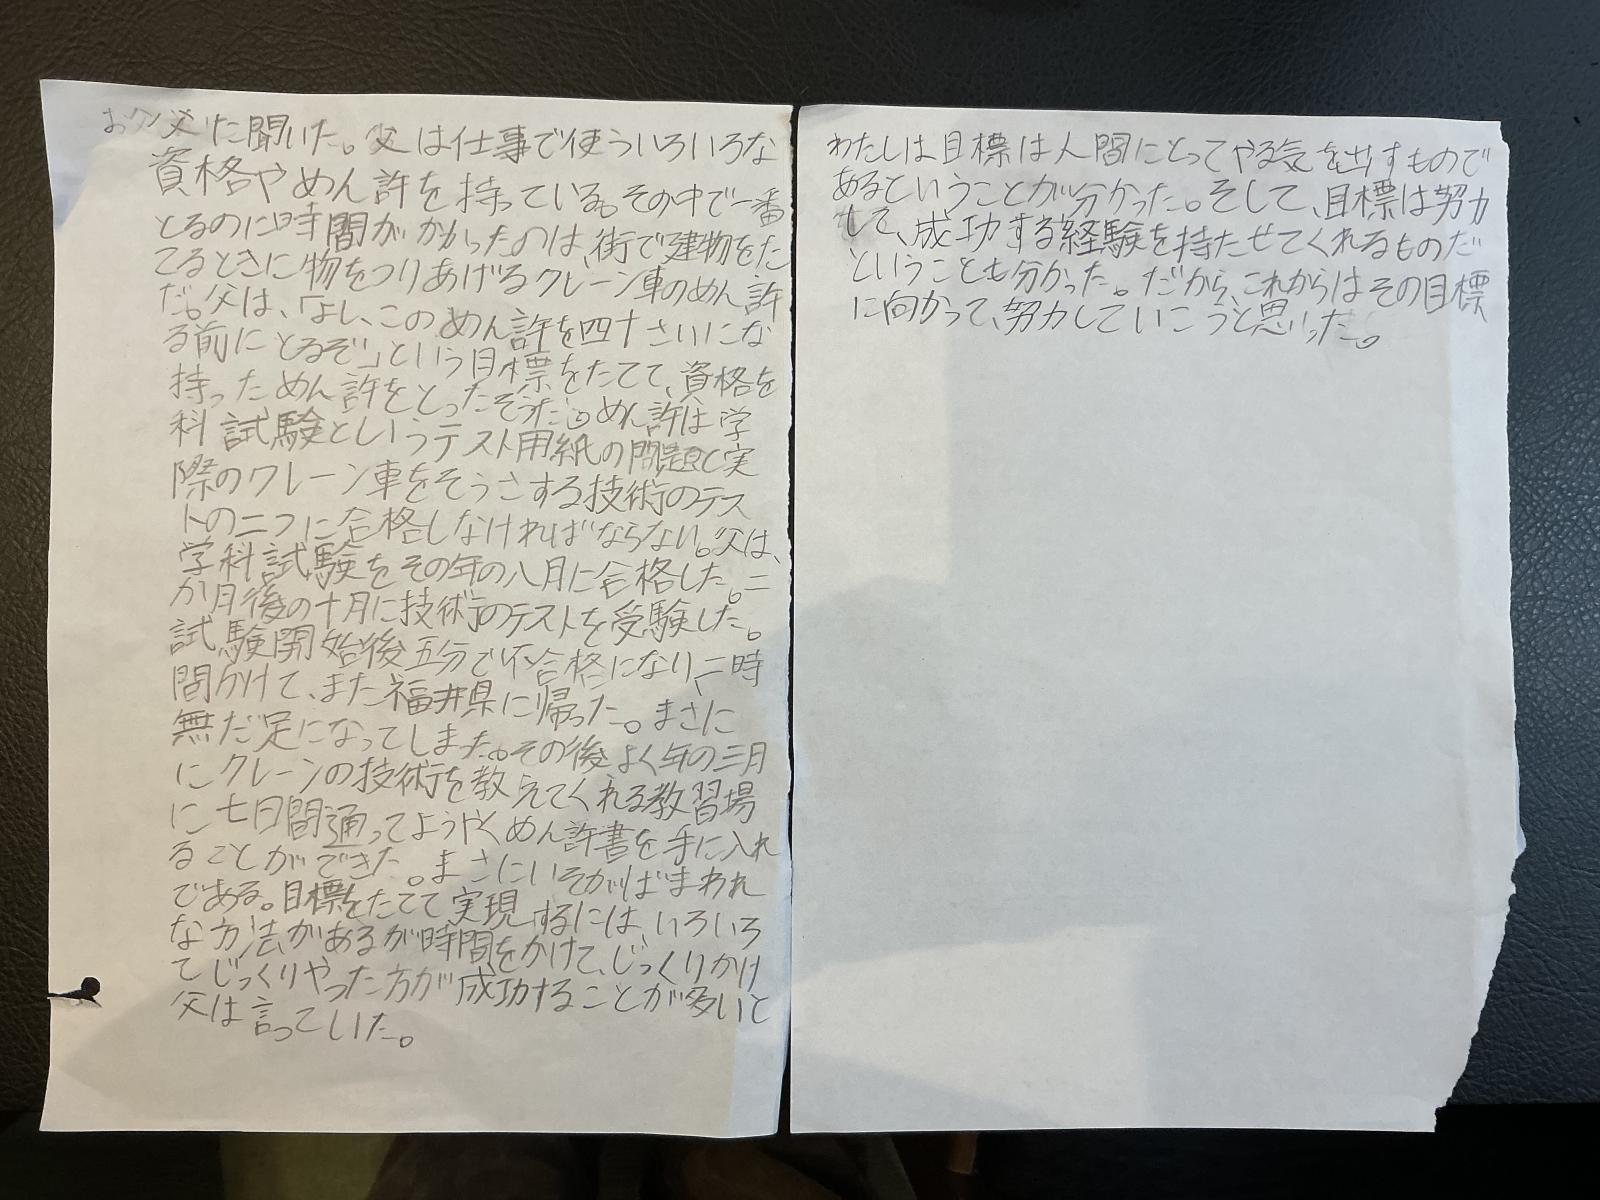 父に聞いた。父は仕事で使ういろいろな
資格やめん許を持っている。その中で一番
とるのに時間がかかったのは、街で建物をた
てるときに物をつりあげるクレーン車のめん許
だ。父は、「よし、このめん許を四十さいにな
る前にとるぞ」という目標をたてて、資格を
持っためん許をとったそうだ。めん許は学
科試験というテスト用紙の問題と実
際のクレーン車をそうさする技術のテス
トの二つに合格しなければならない。父は、
学科試験をその年の八月に合格した。二
か月後の十月に技術のテストを受験した。
試験開始後五分で不合格になり、二時
間かけて、また福井県に帰った。まさに
無だ足になってしまった。その後よく年の三月
にクレーンの技術を教えてくれる教習場
に七日間通ってようやくめん許書を手に入れ
ることができた。まさにいそがばまわれ
である。目標をたてて実現するには、いろいろ
な方法があるが時間をかけて、じっくりかけ
てじっくりやった方が成功することが多いと
父は言っていた。
わたしは目標は人間にとってやる気を出すもので
あるということが分かった。そして、目標は努力
して、成功する経験を持たせてくれるものだ
ということも分かった。だから、これからはその目標
に向かって、努力していこうと思った。